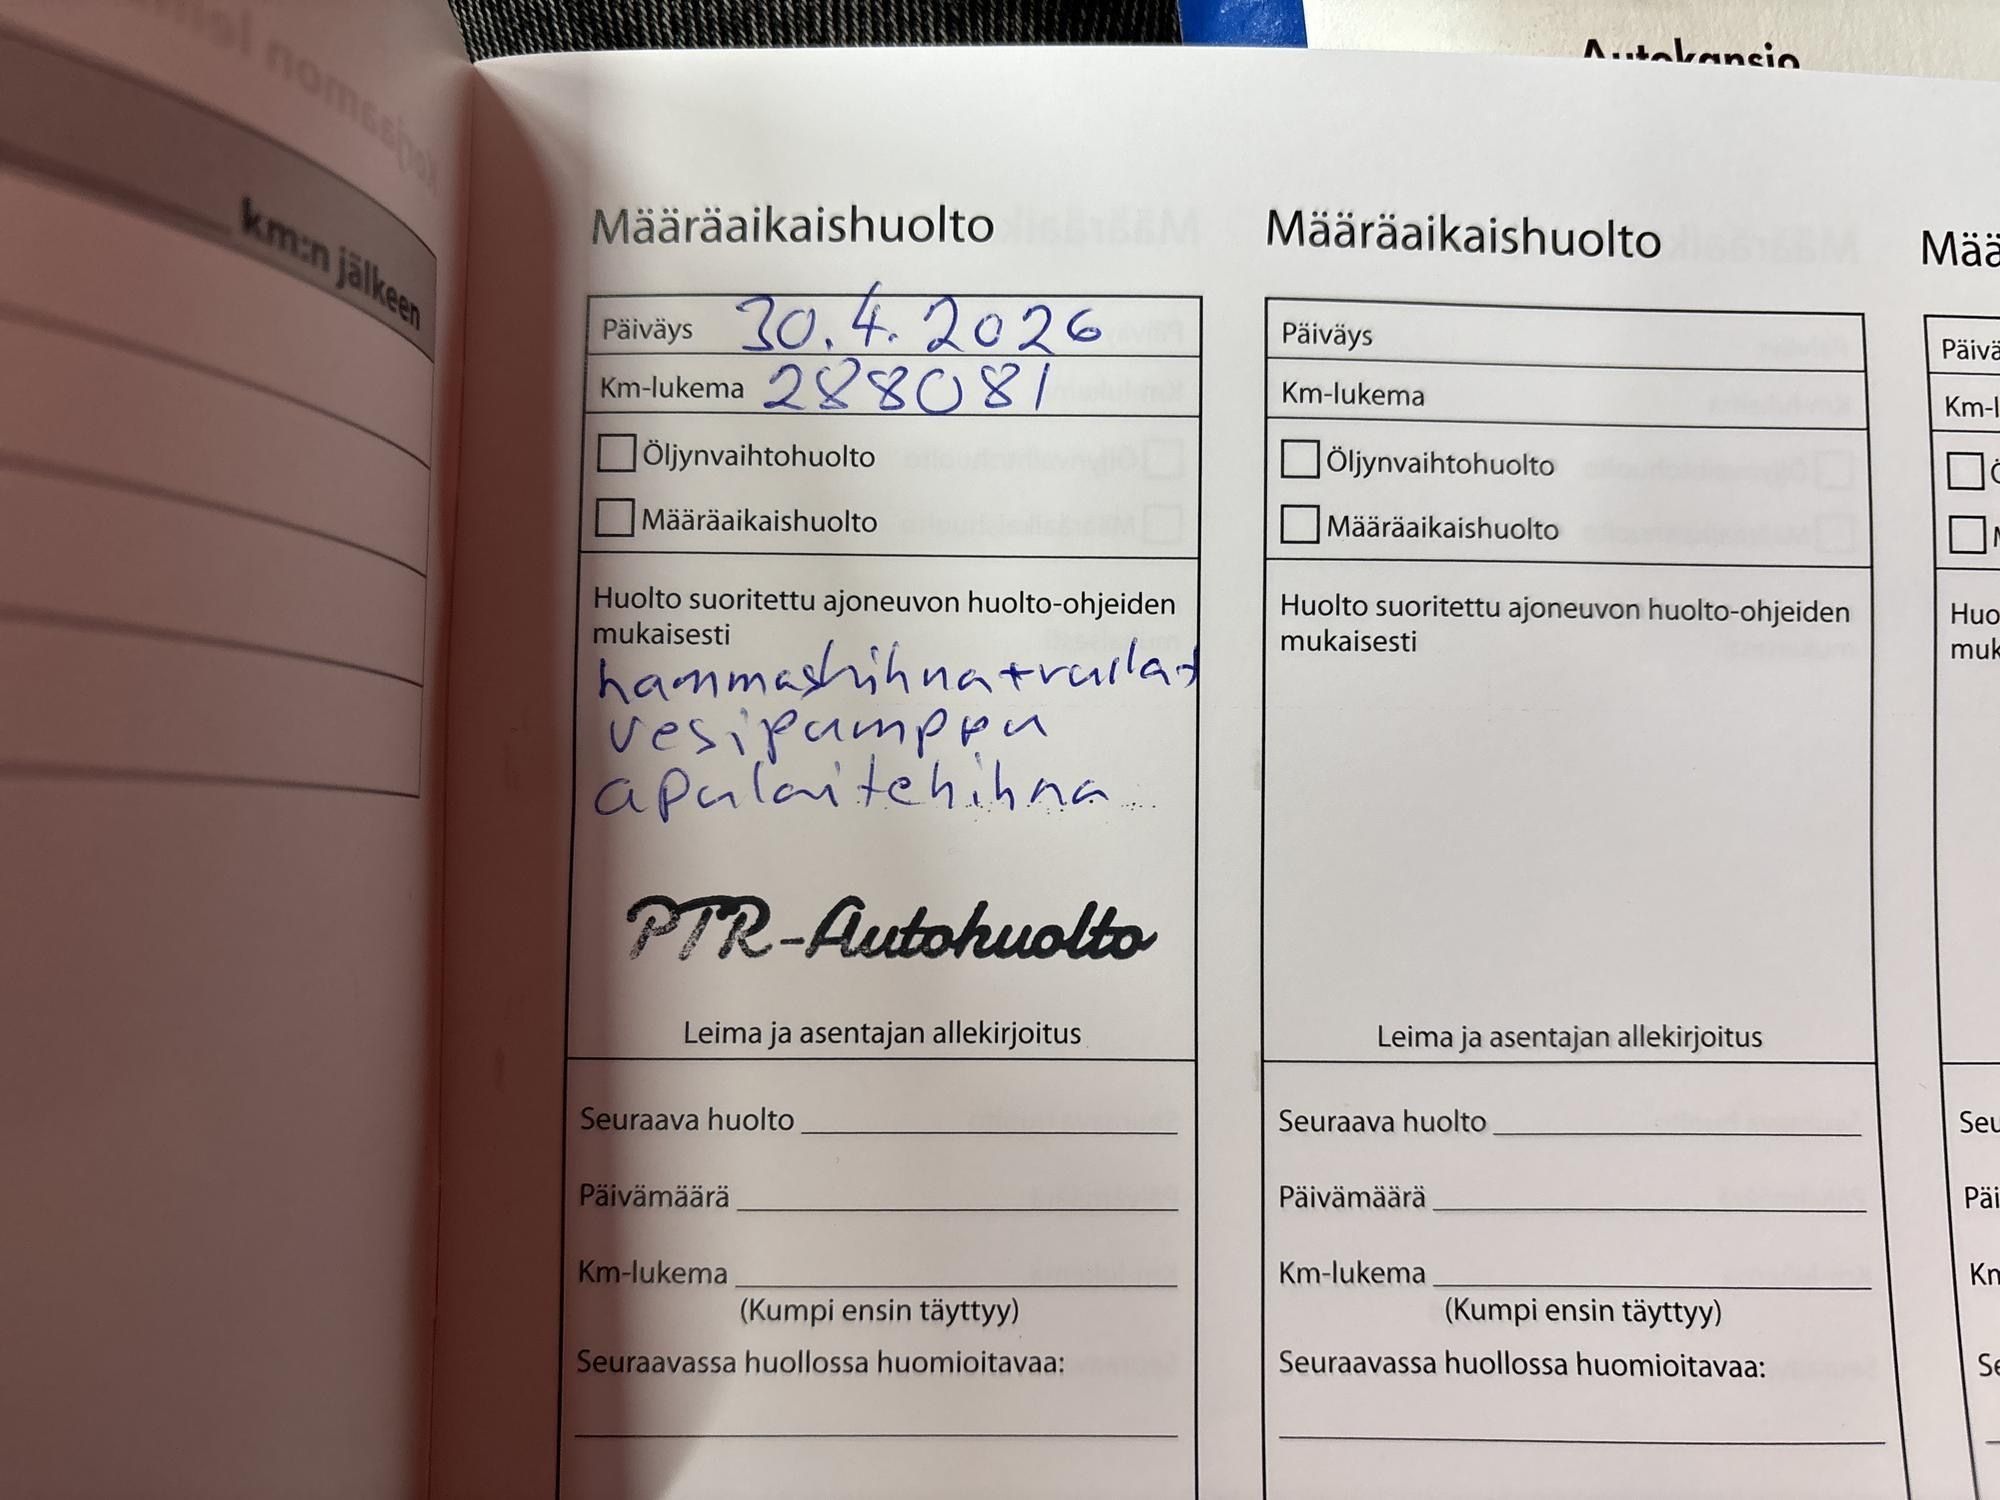 Autokansio
km:n jälkeen
Määräaikaishuolto
Päiväys 30.4.2026
Km-lukema 288081
Öljynvaihtohuolto
Määräaikaishuolto
Huolto suoritettu ajoneuvon huolto-ohjeiden
mukaisesti
hammashihna+rullat
vesipumppu
apulaitehihna
PTR-Autohuolto
Leima ja asentajan allekirjoitus
Seuraava huolto
Päivämäärä
Km-lukema
(Kumpi ensin täyttyy)
Seuraavassa huollossa huomioitavaa:
Määräaikaishuolto
Päiväys
Km-lukema
Öljynvaihtohuolto
Määräaikaishuolto
Huolto suoritettu ajoneuvon huolto-ohjeiden
mukaisesti
Leima ja asentajan allekirjoitus
Seuraava huolto
Päivämäärä
Km-lukema
(Kumpi ensin täyttyy)
Seuraavassa huollossa huomioitavaa: